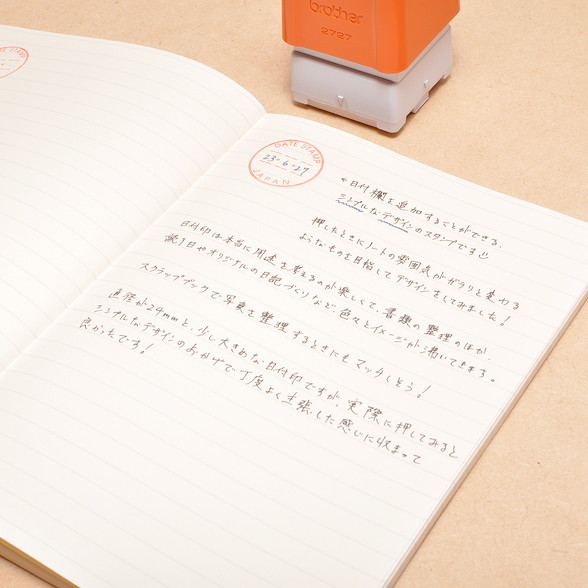 brother
2727
TE STAMP
DATE STAMP
23・6・27
JAPAN
←日付欄を追加することができる、
シンプルなデザインのスタンプです
押したときにノートの雰囲気がガラリと変わる
ようなものを目指してデザインをしてみました！
日付印は本当に用途を考えるのが楽しくて、書類の整理のほか、
紙1日やオリジナルの日記づくりなど、色々とイメージが湧いてきます。
スクラップブックで写真を整理するときにもマッチしそう！
直径が24mmと、少し大きめな日付印ですが、実際に押してみると
シンプルなデザインのおかげで丁度よく主張した感じに収まって
良かったです！